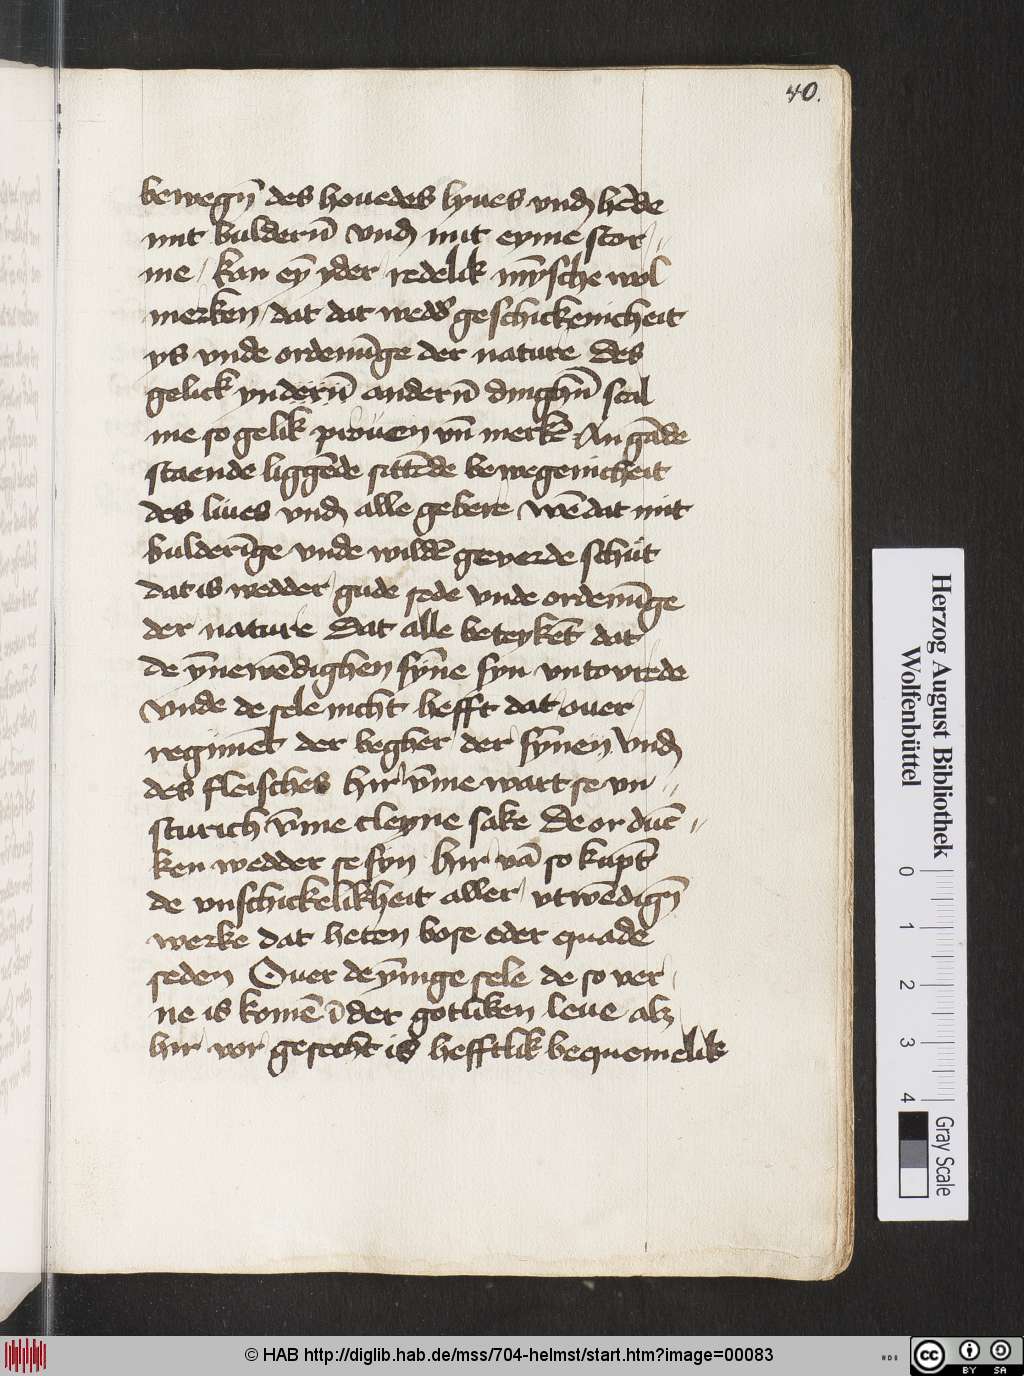 40.
bewegn̄ des houedes lyues vnd hēde
mit bulderñ vnd mit eyme stor
me / kan eȳ yder redelik mȳsche wol
merken / dat dat wedd' geschickenicheit
ys vnde ordenūge der nature Des
gelick ynderñ anderñ dinghñ scal
me so gelik prouen vñ merkē An gāde
staende liggēde sittēde bewegenicheit
des liues vnd alle gebere Wēdat mit
bulderīge vnde wildē geverde schüt
dat is wedder gude rede vnde ordenūge
der nature Dat alle beteykēt dat
de ȳnewēdighen sȳne syn vntovrede
vnde de sele nicht hefft dat ouer
regimēt der begher der sȳnen vnd
des fleisches hir v̄me wart se vn
sturich v̄me cleyne sake De or duc
ken wedder se syn hir vā so kūpt
de vnschickelikheit aller vtwēdign̄
werke dat heten bose eder quade
seden Ouer de ȳnige sele de so ver
ne is komē ī der gotliken leue alz
hir vor gesecht is hefftlik bequemelik
Herzog August Bibliothek
Wolfenbüttel
0 1 2 3 4
Gray Scale
© HAB http://diglib.hab.de/mss/704-helmst/start.htm?image=00083
HAB
cc BY SA